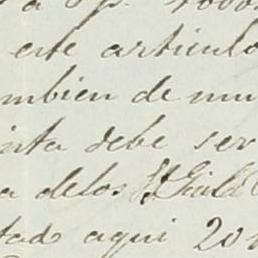 este articulo
mbien de mu
inta debe ser
a delos
tado aqui 20